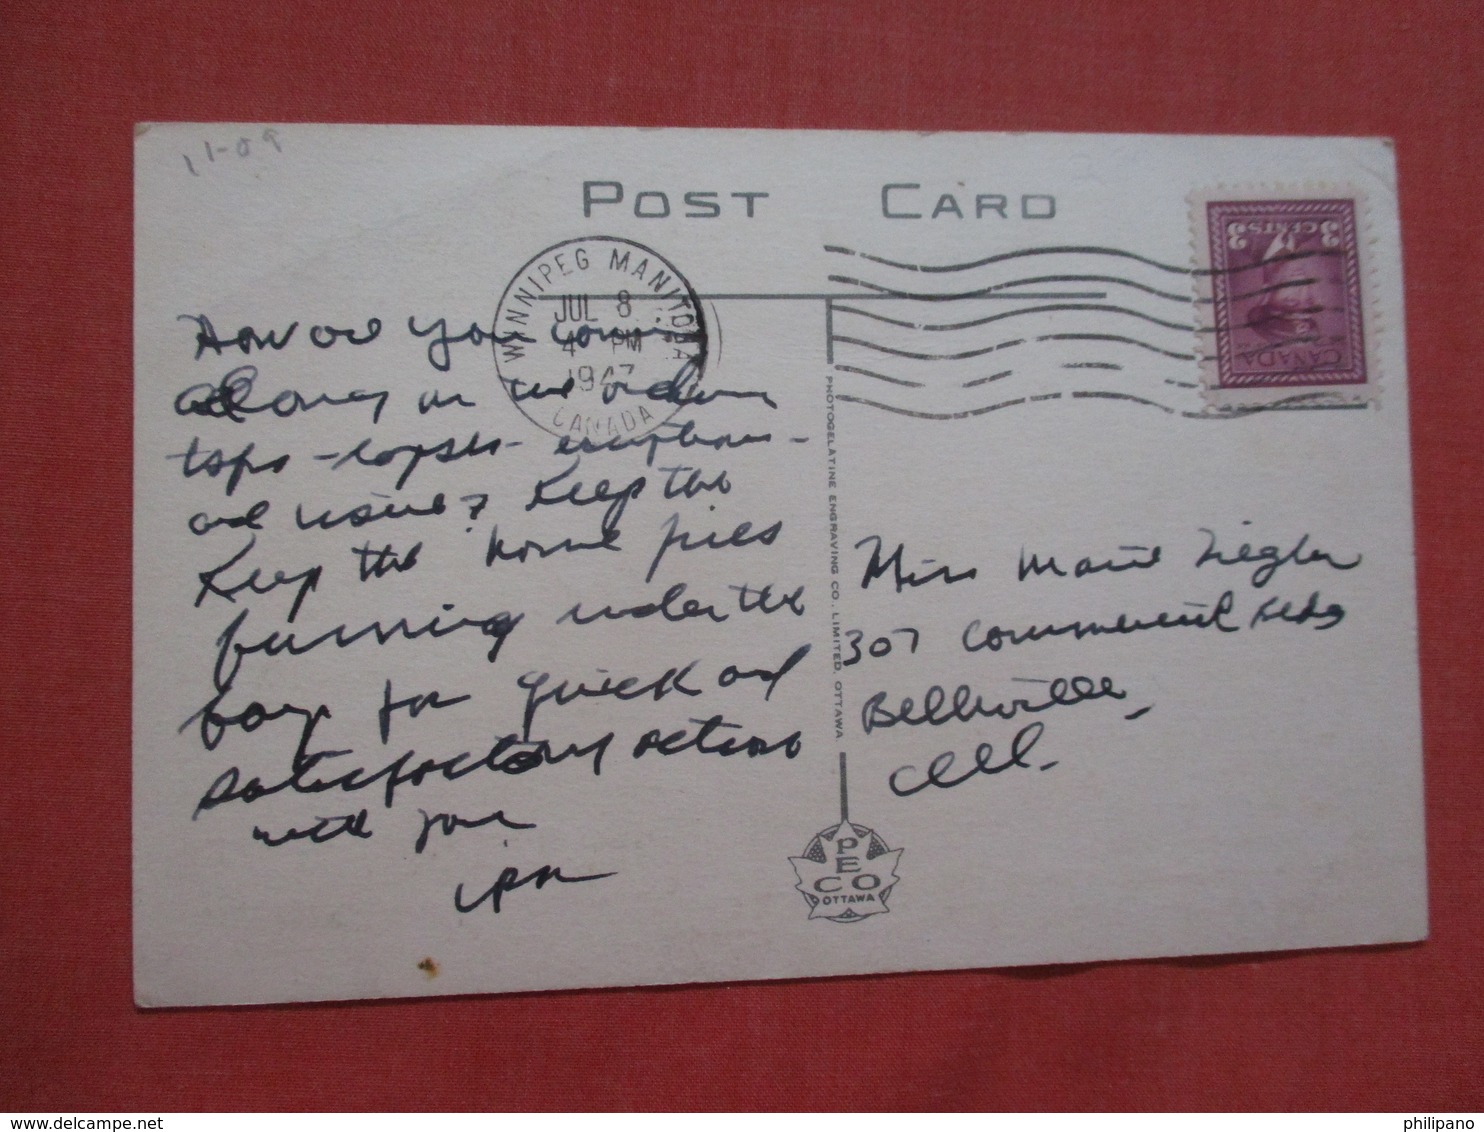 11-09
POST CARD
WINNIPEG MANITOBA
JUL 8
4 PM
1947
CANADA
3 CENTS 3
CANADA
How are you coming
along on
taps - - eruptions -
and noise? Keep the
Keep the home fires
burning under the
boys for quick and
satisfactory actions
with your
PHOTOGELATINE ENGRAVING CO. LIMITED, OTTAWA.
Miss Marie Ziegler
307 Commercial Bldg
Belleville
Ill.
PECO
OTTAWA
philipano